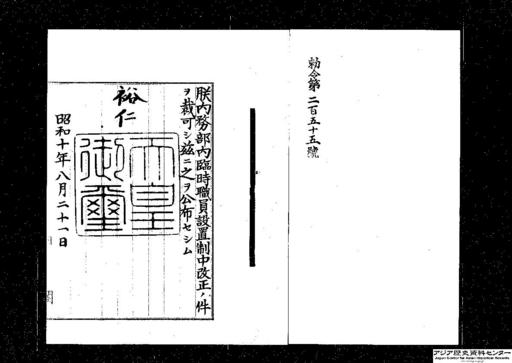 勅令第二百五十五號
朕內務部內臨時職員設置制中改正ノ件
ヲ裁可シ茲ニ之ヲ公布セシム
裕仁
天皇
御璽
昭和十年八月二十一日
アジア歴史資料センター
Japan Center for Asian Historical Records